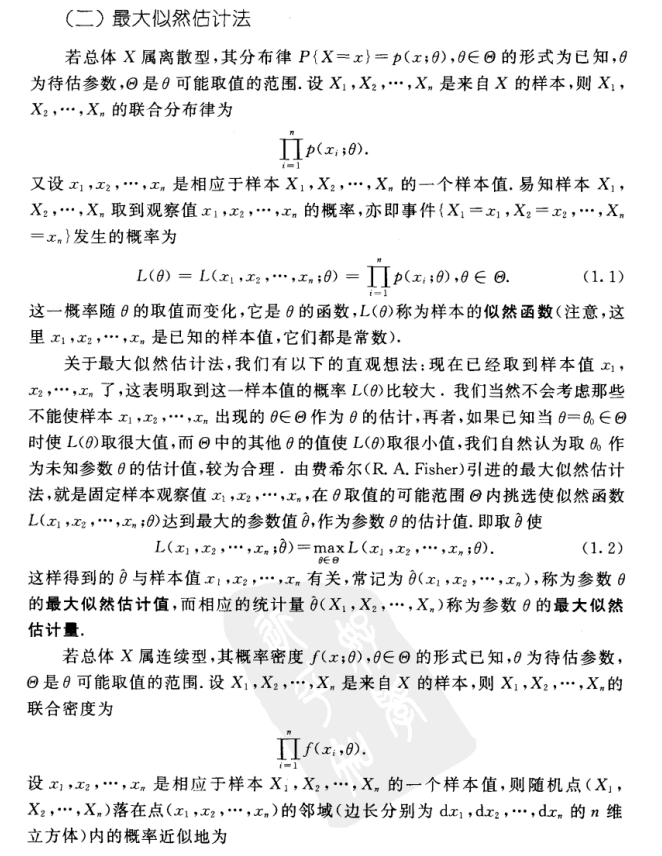 (二) 最大似然估计法
若总体 X 属离散型,其分布律 P{X=x}=p(x;θ),θ∈Θ 的形式为已知,θ
为待估参数,Θ 是 θ 可能取值的范围. 设 X₁,X₂,⋯,Xₙ 是来自 X 的样本,则 X₁,
X₂,⋯,Xₙ 的联合分布律为
∏ᵢ₌₁ⁿ p(xᵢ;θ).
又设 x₁,x₂,⋯,xₙ 是相应于样本 X₁,X₂,⋯,Xₙ 的一个样本值. 易知样本 X₁,
X₂,⋯,Xₙ 取到观察值 x₁,x₂,⋯,xₙ 的概率,亦即事件{X₁=x₁,X₂=x₂,⋯,Xₙ
=xₙ}发生的概率为
L(θ) = L(x₁,x₂,⋯,xₙ;θ) = ∏ᵢ₌₁ⁿ p(xᵢ;θ),θ∈Θ. (1.1)
这一概率随 θ 的取值而变化,它是 θ 的函数,L(θ)称为样本的似然函数(注意,这
里 x₁,x₂,⋯,xₙ 是已知的样本值,它们都是常数).
关于最大似然估计法,我们有以下的直观想法:现在已经取到样本值 x₁,
x₂,⋯,xₙ 了,这表明取到这一样本值的概率 L(θ)比较大. 我们当然不会考虑那些
不能使样本 x₁,x₂,⋯,xₙ 出现的 θ∈Θ 作为 θ 的估计,再者,如果已知当 θ=θ₀∈Θ
时使 L(θ)取很大值,而 Θ 中的其他 θ 的值使 L(θ)取很小值,我们自然认为取 θ₀ 作
为未知参数 θ 的估计值,较为合理. 由费希尔(R. A. Fisher)引进的最大似然估计
法,就是固定样本观察值 x₁,x₂,⋯,xₙ,在 θ 取值的可能范围 Θ 内挑选使似然函数
L(x₁,x₂,⋯,xₙ;θ)达到最大的参数值 θ̂,作为参数 θ 的估计值. 即取 θ̂ 使
L(x₁,x₂,⋯,xₙ;θ̂)=max_{θ∈Θ} L(x₁,x₂,⋯,xₙ;θ). (1.2)
这样得到的 θ̂ 与样本值 x₁,x₂,⋯,xₙ 有关,常记为 θ̂(x₁,x₂,⋯,xₙ),称为参数 θ
的最大似然估计值,而相应的统计量 θ̂(X₁,X₂,⋯,Xₙ)称为参数 θ 的最大似然
估计量.
若总体 X 属连续型,其概率密度 f(x;θ),θ∈Θ 的形式已知,θ 为待估参数,
Θ 是 θ 可能取值的范围. 设 X₁,X₂,⋯,Xₙ 是来自 X 的样本,则 X₁,X₂,⋯,Xₙ的
联合密度为
∏ᵢ₌₁ⁿ f(xᵢ,θ).
设 x₁,x₂,⋯,xₙ 是相应于样本 X₁,X₂,⋯,Xₙ 的一个样本值,则随机点(X₁,
X₂,⋯,Xₙ)落在点(x₁,x₂,⋯,xₙ)的邻域(边长分别为 dx₁,dx₂,⋯,dxₙ 的 n 维
立方体)内的概率近似地为